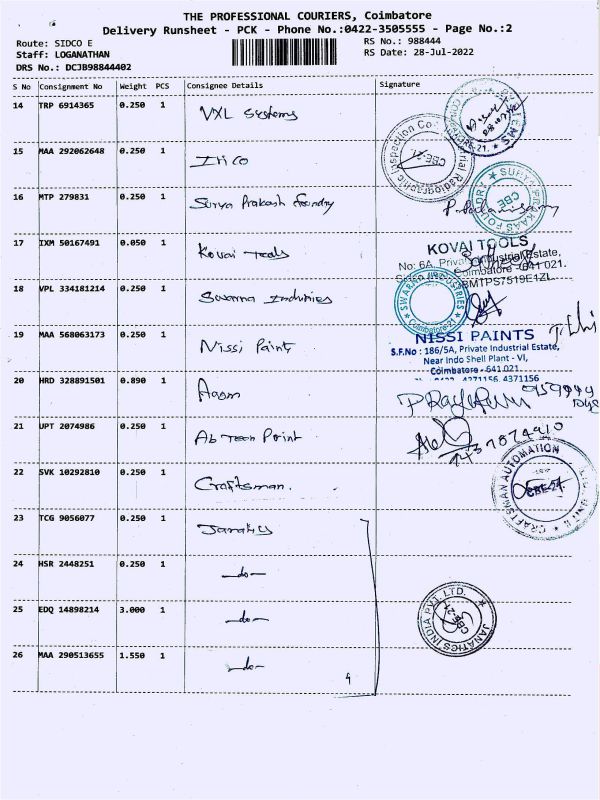 THE PROFESSIONAL COURIERS, Coimbatore
Delivery Runsheet - PCK - Phone No.:0422-3505555 - Page No.:2
Route: SIDCO E
RS No.: 988444
Staff: LOGANATHAN
RS Date: 28-Jul-2022
DRS No.: DCJB98844402
S No Consignment No Weight PCS Consignee Details Signature
14 TRP 6914365 0.250 1 VXL Systems
15 MAA 292062648 0.250 1 Irico
Radiographic Inspection Co CBE-21
16 MTP 279831 0.250 1 Surya Prakash Foundry
CBE
17 IXM 50167491 0.050 1 Kovai Tools
KOVAI TOOLS
No: 6A, Private Industrial Estate,
Coimbatore - 641 021.
18 VPL 334181214 0.250 1 Swarna Industries
SWARNA INDUSTRIES Coimbatore-21
19 MAA 568063173 0.250 1 Nissi Paints
NISSI PAINTS
S.F.No : 186/5A, Private Industrial Estate,
Near Indo Shell Plant - VI,
Coimbatore - 641 021
4271156, 4371156
20 HRD 328891501 0.890 1
21 UPT 2074986 0.250 1 Ab Tech Point
22 SVK 10292810 0.250 1 Craftsman.
CRAFTSMAN AUTOMATION CBE-21
23 TCG 9056077 0.250 1
24 HSR 2448251 0.250 1 -do-
25 EDQ 14898214 3.000 1 -do-
JANATICS INDIA PVT. LTD. CBE-21
26 MAA 290513655 1.550 1 -do-
4